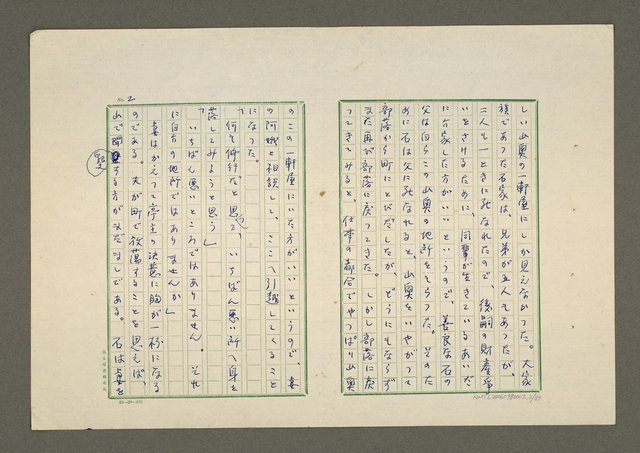 しい山奥の一軒屋にしか見えなかった。大家
族であった石家は、兄弟が五人もあったが、
二人も一ときに死なれたので、後嗣の財産争
いをさけるために、同輩が生きているあいだ
に分家した方がいいというので、善良な石の
父は自らこの山奥の地所をもらった。そのた
めに石は父に死なれると、山奥をいやがって
部落から町にとびだしたが、どうにもならず
また再び部落に戻ってきた。しかし部落に戻
ってきてみると、仕事の都合でやっぱり山奥
No. 2
のこの一軒屋にいた方がいいというので、妻
の阿娥と相談して、ここへ引越してくること
になった。
「何も修行だと思って、いちばん悪い所へ身を
落してみようと思う」
「いちばん悪いところではありません。それ
に自分の地所ではありませんか」
妻はかえって亭主の決意に胸が一杯になる
のである。夫が町で放蕩することを思えば、
山で開墾する方がまだましである。石は妻を